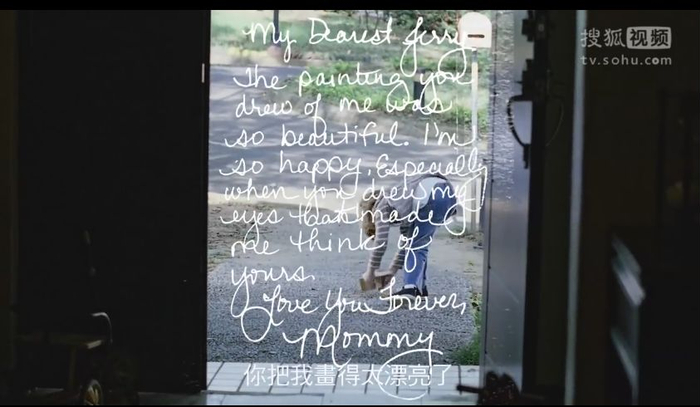 搜狐视频
tv.sohu.com
My Dearest Jerry
The painting you
drew of me was
so beautiful. I'm
so happy, Especially
when you drew my
eyes that made
me think of
yours.
Love You Forever,
Mommy
你把我畫得太漂亮了